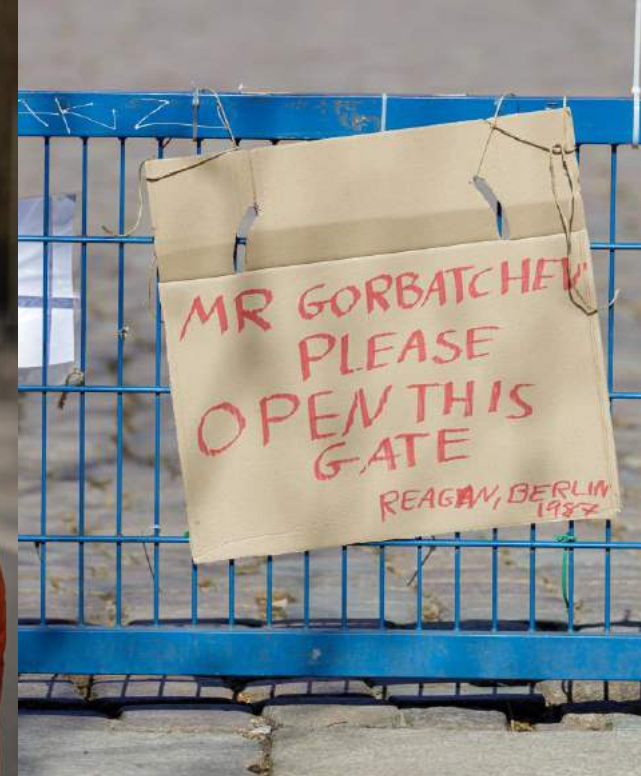 MR GORBATCHEV
PLEASE
OPEN THIS
GATE
REAGAN, BERLIN
1987